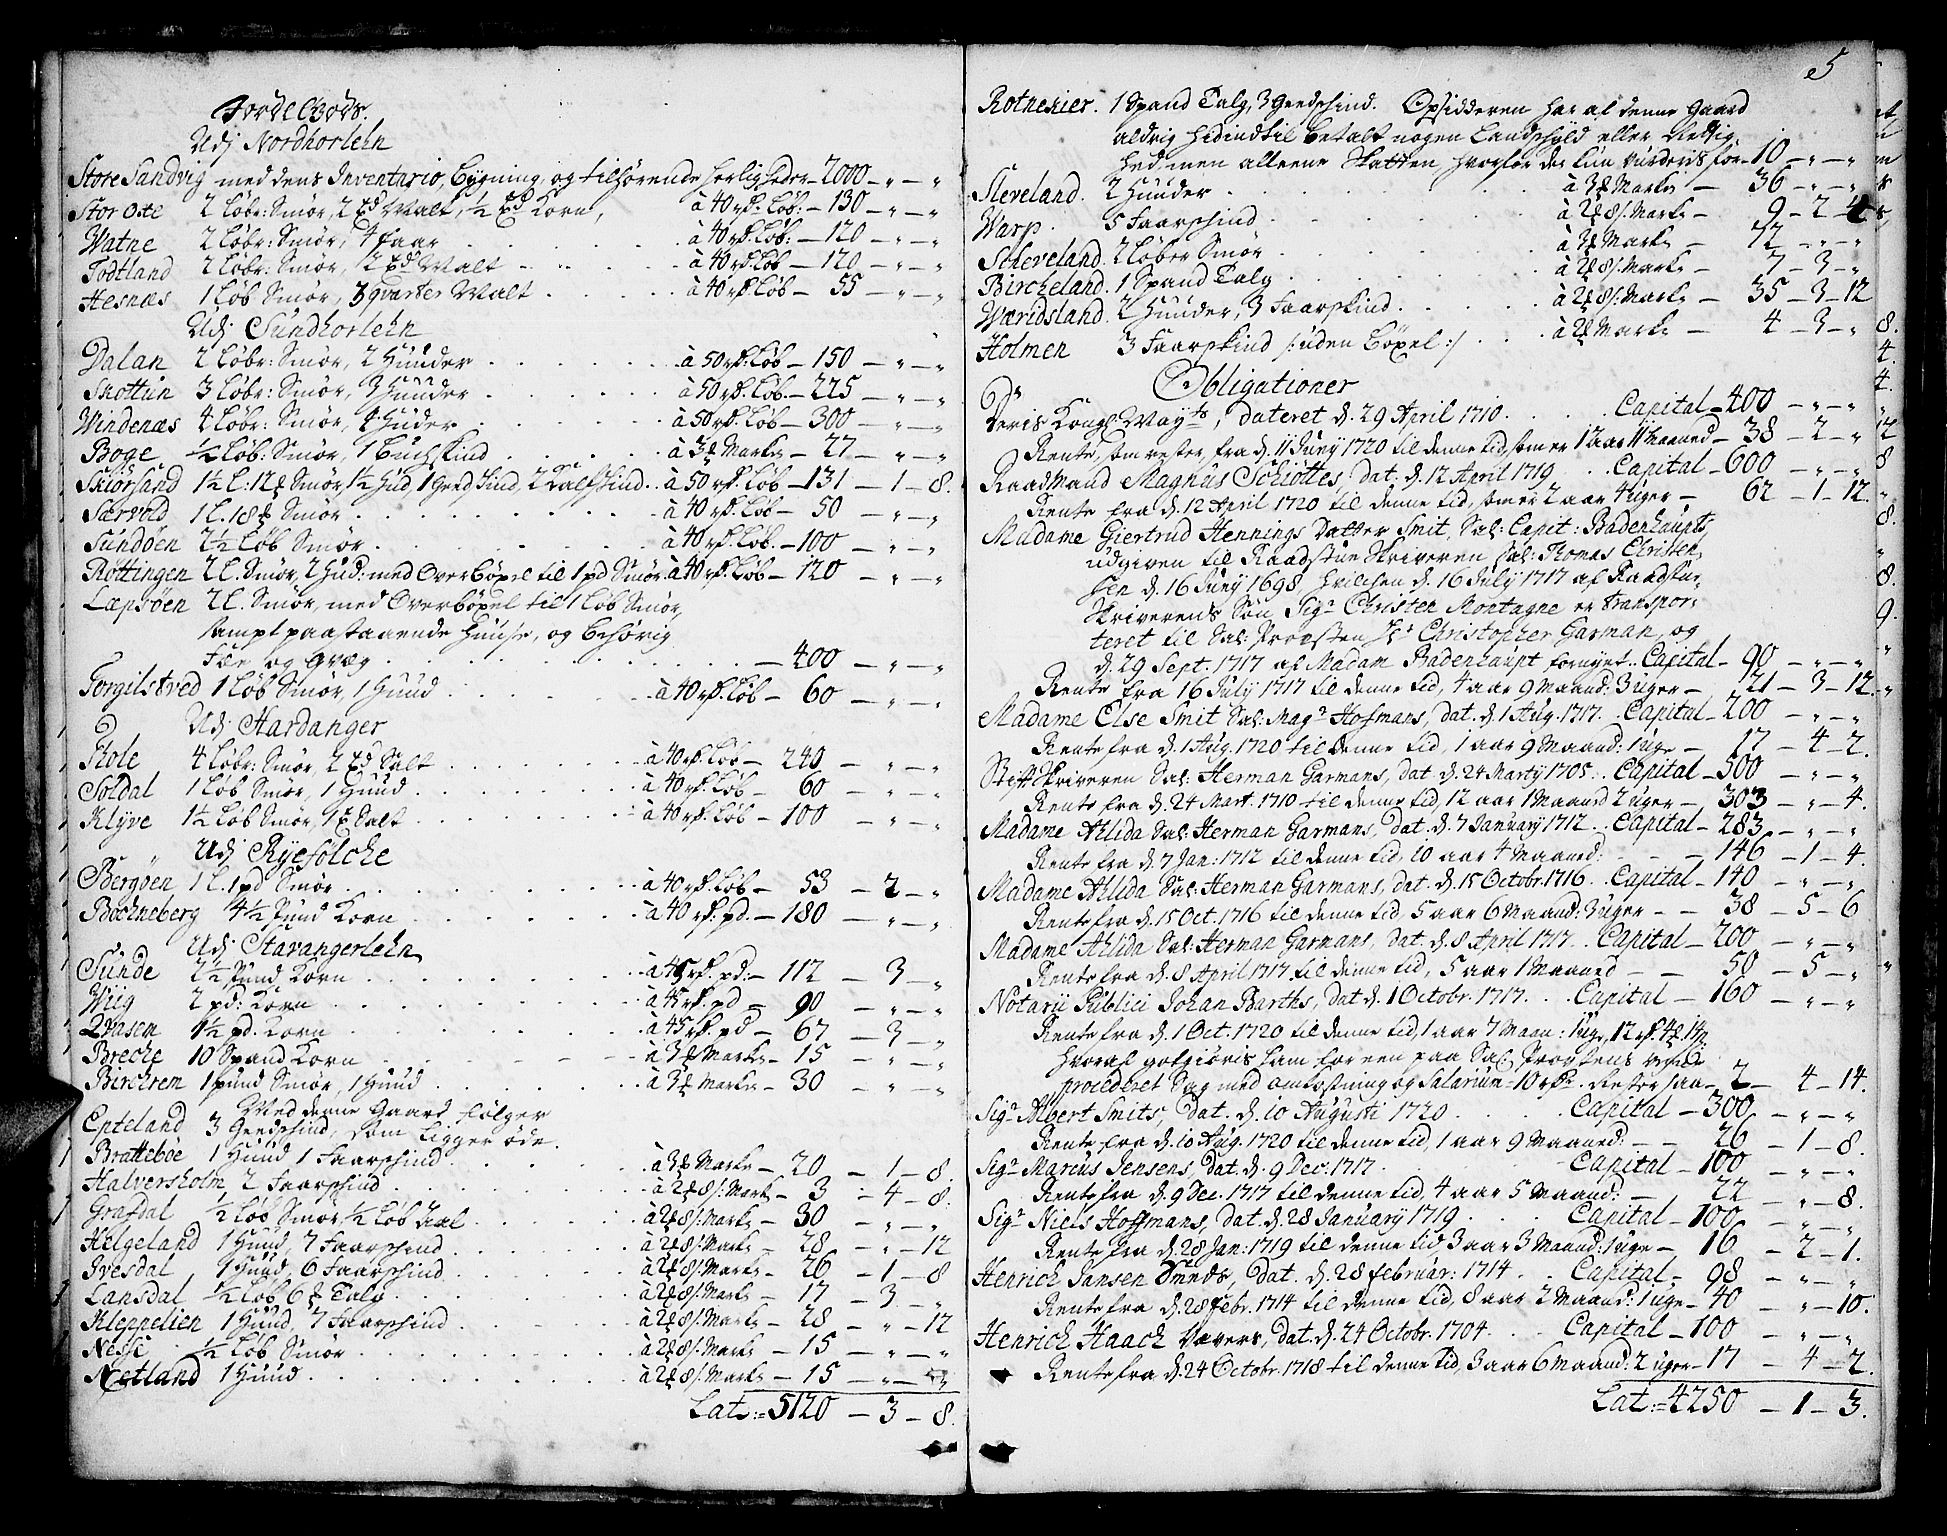 Jorde Gods.
Udj Nordhorlehn
Store Sandvig med dens Inventario, Bygning, og tilhørende herligheder – 2000 – „ – „
Stor Oxe 2 Løbr: Smør, 2 td Malt, ½ td Korn, à 40 rd. Løb: – 130 – „ – „
Watne 2 Løbr: Smør, 4 faar à 40 rd. Løb: – 120 – „ – „
Todtland 2 Løbr: Smør, 2 td Malt à 40 rd. Løb – 120 – „ – „
Hesnæs 1 Løb Smør, 3 qvarter Malt à 40 rd. Løb – 55 – „ – „
Udj Sundhorlehn
Dalan 2 Løbr: Smør, 2 Huuder à 50 rd. Løb – 150 – „ – „
Skottun 3 Løbr: Smør, 3 Huuder à 50 rd. Løb. – 225 – „ – „
Windenæs 4 Løbr: Smør, 4 Huder à 50 rd. Løb – 300 – „ – „
Boge ½ Løb: Smør, 1 Buchskind à 3 ℔ Marke – 27 – „ – „
Skiørsand 1½ L: 12 ℔ Smør, ½ Hud, 1 Geedskind, 2 Kalfskind à 50 rd. Løb – 131 – 1 – 8.
Særvold 1 L. 18 ℔ Smør à 40 rd. Løb – 50 – „ – „
Sundøen 2½ Løb Smør à 40 rd. Løb. – 100 – „ – „
Røttingen 2 L. Smør, 2 Hud: med Overbøxel til 1 pd Smør à 40 rd. Løb – 120 – „ – „
Læpsøen 2 L. Smør, med Overbøxel til 1 Løb Smør,
sampt paastaaende Huuse, og behørig
Fæe og qvæg – 400 – „ – „
Torgilstved 1 Løb Smør, 1 Huud à 40 rd. Løb – 60 – „ – „
Udj Hardanger
Kole 4 Løbr: Smør, 2 td Salt à 40 rd. Løb – 240 – „ – „
Soldal 1 Løb Smør, 1 Huud à 40 rd. Løb – 60 – „ – „
Klyve 1½ Løb Smør, 1 t Salt à 40 rd. Løb – 100 – „ – „
Udj Ryefølche
Bergøen 1 L. 1 pd Smør à 40 rd. Løb – 53 – 2 – „
Bochneberg 4½ Pund Korn à 40 rd. pd. – 180 – „ – „
Udj Stavangerlehn
Sunde 2½ Pund Korn à 45 rd. pd: – 112 – 3 – „
Wiig 2 pd: Korn à 45 rd. pd – 90 – „ – „
Qvasen 1½ pd. Korn à 45 rd. pd – 67 – 3 – „
Breche 10 Spand Korn à 3 ℔ Marke – 15 – „ – „
Birchrem 1 pund Smør, 1 Huud à 3 ℔ Marke – 30 – „ – „
Med denne Gaard følger
Epteland 3 Geedskind, som ligger øde.
Brattebøe 1 Huud 1 Faarschind à 3 ℔ Marke – 20 – 1 – 8.
Halversholm, 2 Faarschind à 2 ℔ 8 s. Mark – 3 – 4 – 8.
Grafdal ½ Løb Smør, ½ Løb Tal à 2 ℔ 8 s. Marke – 30 – „ – „
Helgeland 1 Huud, 7 Faarschind à 2 ℔ 8 s. Marke – 28 – „ – 12
Ivesdal 1 Huud, 6 Faarschind à 2 ℔ 8 s. Marke – 26 – 1 – 8
Lansdal ½ Løb 6 ℔ Talg à 2 ℔ 8 s. Marke – 17 – 3 – „
Kleppelien 1 Huud, 7 Faarschind à 2 ℔ 8 s. Marke – 28 – „ – 12
Nesse ½ Løb Smør à 2 ℔ 8 s. Marke – 15 – „ – „
Netland 1 Huud à 2 ℔ 8 s. Marke – 15 – „ – „
Lat: = 5120 – 3 – 8.
5
Rotnekier. 1 Spand Talg, 3 Geedschind. Opsidderen har af denne Gaard
aldrig hidindtil betalt nogen Landschyld eller Rettig
hed, men alleene Skatten, hvorfor der kun vurderis for – 10 – „ – „
Steveland. 2 Huuder à 3 ℔ Marke – 36 – „ – „
Warp. 5 Faarschind à 2 ℔ 8 s. Mark – 9 – 2 – 4
Scheveland. 2 Løber Smør à 3 ℔ Marke – 72 – „ – „
Bircheland. 1 Spand Talg à 2 ℔ 8 s. Marke – 7 – 3 – „
Wæridsland. 2 Huuder, 3 Faarskind à 2 ℔ 8 s. Marke – 35 – 3 – 12
Holmen 3 Faarskind /: uden Bøxel :/ à 2 ℔ Marke – 4 – 3 – „
Obligationer
Deris Kongl. Mayts, dateret d. 29 April 1710 Capital – 400 – „ – „
Rente, som rester, fra d. 11 Juny 1720 til denne tid, som er 1 aar 11 Maaned – 38 – 2 – „
Raadmand Magnus Schiøttes, dat. d. 12 April 1719 Capital – 600 – „ – „
Rente fra d. 12 April 1720 til denne tid, som er 2 aar 4 uger – 62 – 1 – 12.
Madame Giertrud Hennings Datter Smit, Sal: Capit: Badenhaupts
udgiven til Raadstue Skriveren Sal: Thomas Christen
sen d. 16 Juny 1698, hvilchen d. 16 July 1717 af Raadstue
Skriverens Søn Sigr Christen Montagne er transpor-
teret til Sal: Provsten Hr Christopher Garman, og
d. 29 Sept. 1717 af Madam Badenhaupt fornyet. Capital – 90 – „ – „
Rente fra 16 July 1717 til denne tid, 4 aar 9 Maaned: 3 uger – 21 – 3 – 12.
Madame Else Smit Sal: Magr Hofmans, dat. d. 1 Aug. 1717. Capital – 200 – „ – „
Rente fra d. 1 Aug. 1720 til denne tid, 1 aar 9 Maaned: 1 uge – 17 – 4 – 2.
Stiftskriveren Sal: Herman Garmans, dat. d. 24 Marty 1705. Capital – 500 – „ – „
Rente fra d. 24 Mart. 1710 til denne tid, 12 aar 1 Maaned 2 uger – 303 – „ – 4.
Madame Ahlida Sal: Herman Garmans, dat. d. 7 January 1712. Capital – 283 – „ – „
Rente fra d. 7 Jan: 1712 til denne tid, 10 aar 4 Maaned: – 146 – 1 – 4.
Madame Ahlida Sal: Herman Garmans, dat. d. 15 Octobr. 1716. Capital – 140 – „ – „
Rente fra d. 15 Oct. 1716 til denne tid, 5 aar 6 Maaned: 3 uger – 38 – 5 – 6
Madame Ahlida, Sal: Herman Garmans, dat. d. 8 April 1717. Capital – 200 – „ – „
Rente fra d. 8 April 1717 til denne tid, 5 aar 1 Maaned – 50 – 5 – „
Notarii Publici Johan Barths, dat d. 1 Octobr. 1717. Capital – 160 – „ – „
Rente fra d. 1 Oct. 1720 til denne tid, 1 aar 7 Maan: 1 uge, 12 rd. 4 ℔ 14 s
hvoraf gotgiøris ham for een paa Sal. Provstens vegne
procederet Sag med omkostning og Salarium = 10 rdr. Rester saa – 2 – 4 – 14.
Sigr Albert Smits, dat. d. 10 Augusti 1720 Capital – 300 – „ – „
Rente fra d. 10 Aug. 1720 til denne tid, 1 aar 9 Maaned: – 26 – 1 – 8.
Sigr Marcus Jensens, dat. d. 9 Dec. 1717 Capital – 100 – „ – „
Rente fra d. 9 Dec. 1717 til denne tid, 4 aar 5 Maaned: – 22 – „ – 8.
Sigr Niels Hoffmans, dat. d. 28 January 1719 Capital – 100 – „ – „
Rente fra d. 28 Jan: 1719 til denne tid, 3 aar 3 Maaned: 1 uge – 16 – 2 – 1.
Henrich Jansen Sunds, dat. d. 28 februar: 1714 Capital – 98 – „ – „
Rente fra d. 28 febr. 1714 til denne tid, 8 aar 2 Maaned: 1 uge – 40 – „ – 10.
Henrich Haach Vævers, dat. d. 24 Octobr. 1704 Capital – 100 – „ – „
Rente fra d. 24 Octobr. 1718 til denne tid, 3 aar 6 Maaned: 2 uger – 17 – 4 – 2.
Lat: = 4250 – 1 – 3.